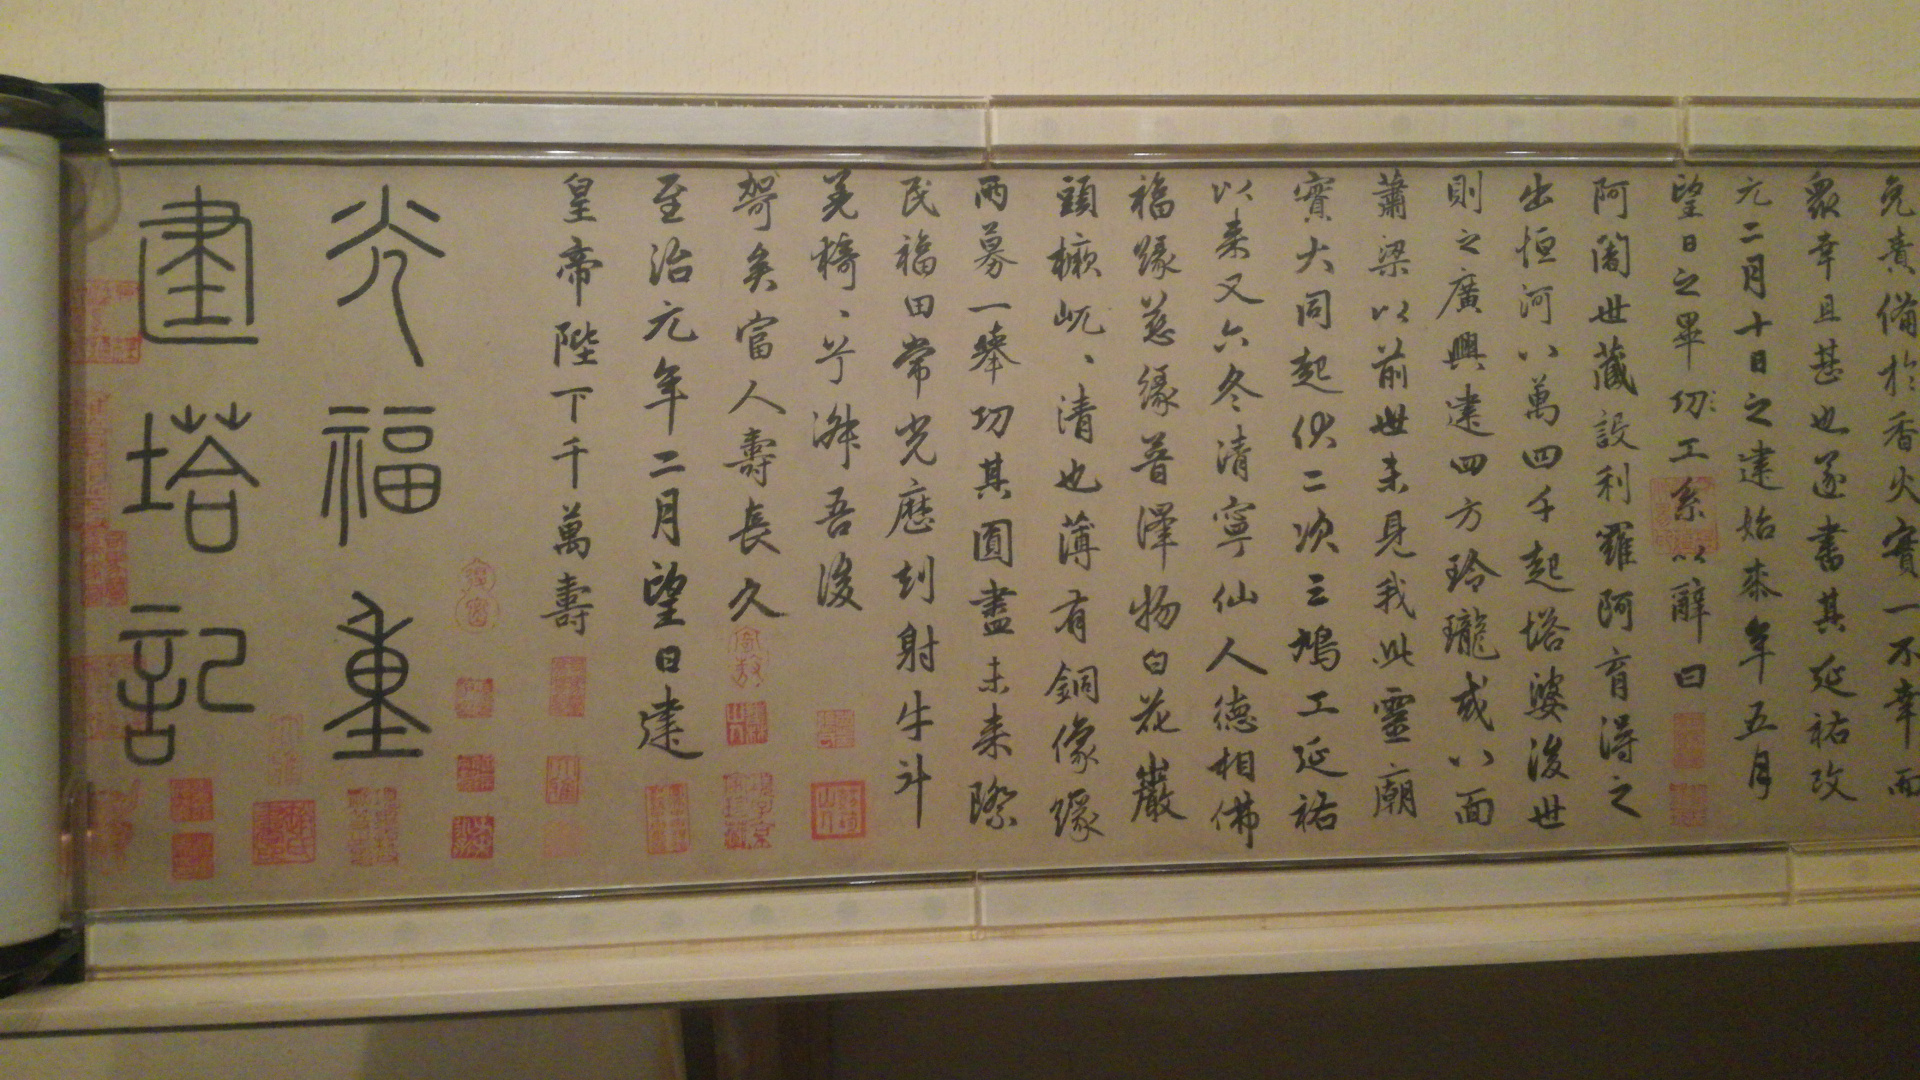 免責備於香火實一不幸而
衆幸且甚也遂書其延祐改
元二月十日之建始泰年五月
望日之畢功工系以辭曰
阿闍世藏設利羅阿育得之
出恒河以萬四千起塔婆後世
則之廣興建四方玲瓏或以面
蕭梁以前世未見我此靈廟
寶大同起伏二次三鳩工延祐
以来又六冬清寧仙人德相佛
福緣慈緣普澤物白花巖
頭櫢屼、清也薄有銅像緣
両募一舉功其圓盡未来際
民福田常光歷刦射牛斗
美輪、兮渙吾後
矣富人壽長久
至治元年二月望日建
皇帝陛下千萬壽
光福重
建塔記